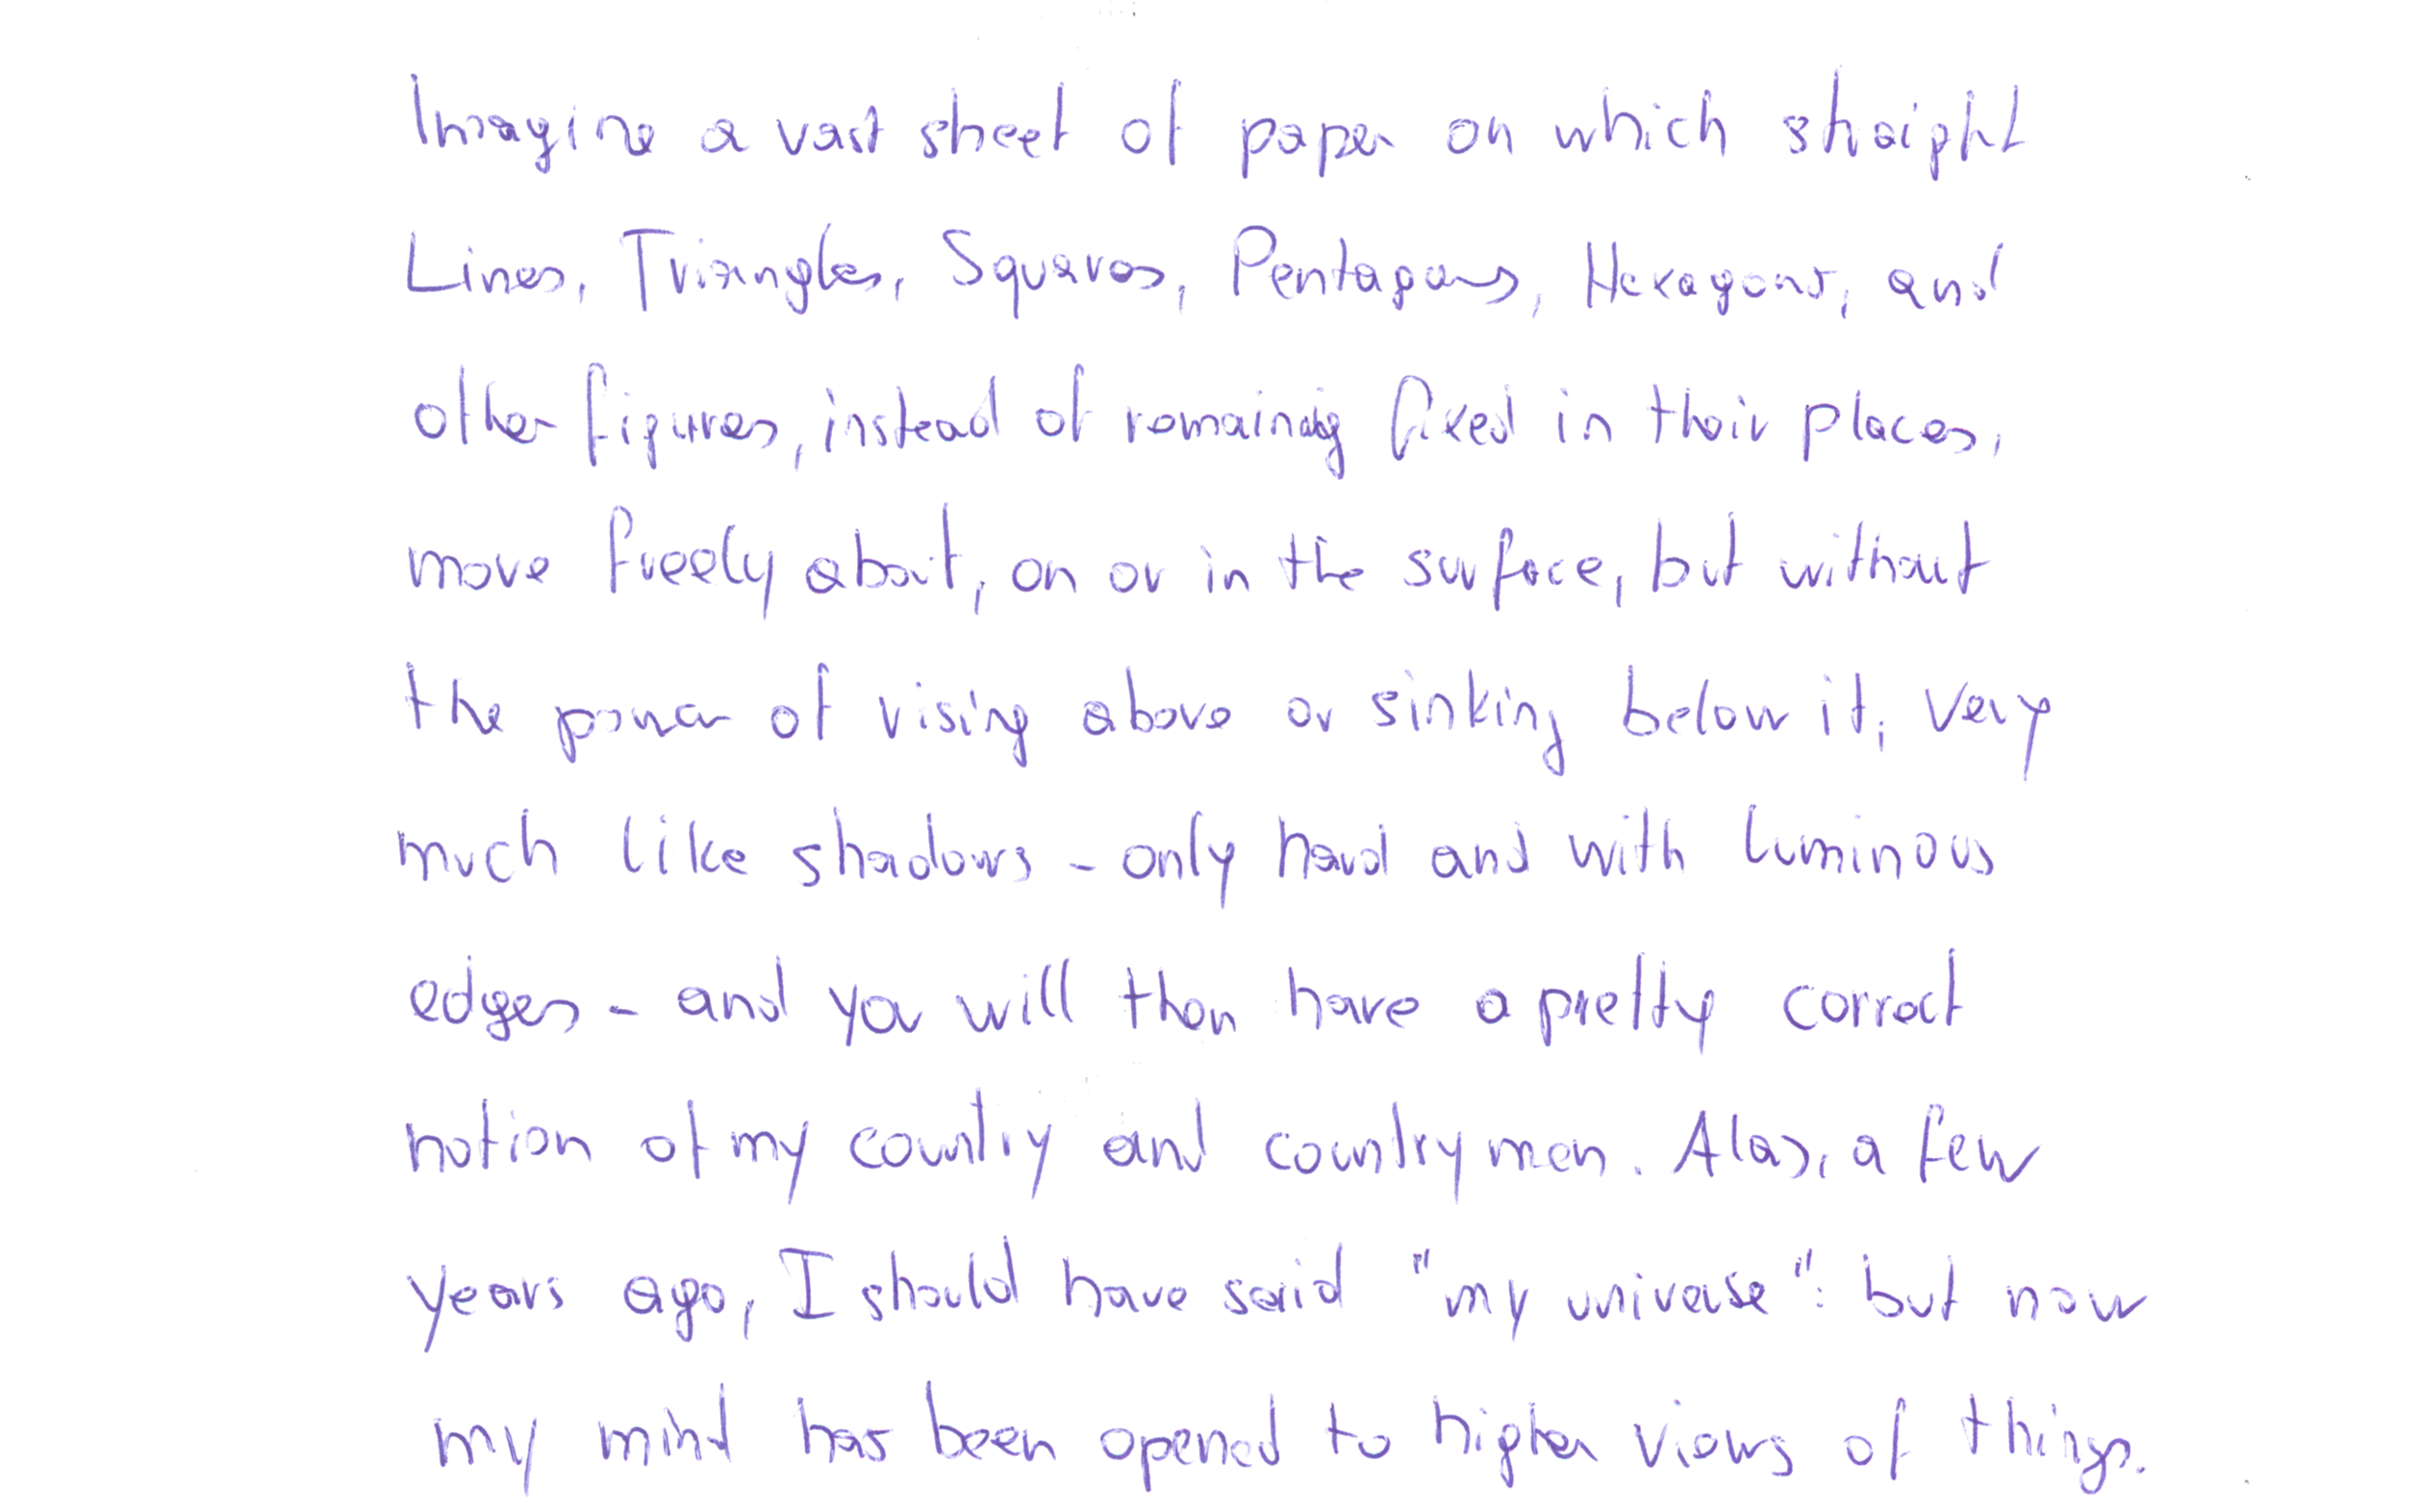 Imagine a vast sheet of paper on which straight
Lines, Triangles, Squares, Pentagons, Hexagons, and
other figures, instead of remaining fixed in their places,
move freely about, on or in the surface, but without
the power of rising above or sinking below it, very
much like shadows - only hard and with luminous
edges - and you will then have a pretty correct
notion of my country and countrymen. Alas, a few
years ago, I should have said "my universe": but now
my mind has been opened to higher views of things.